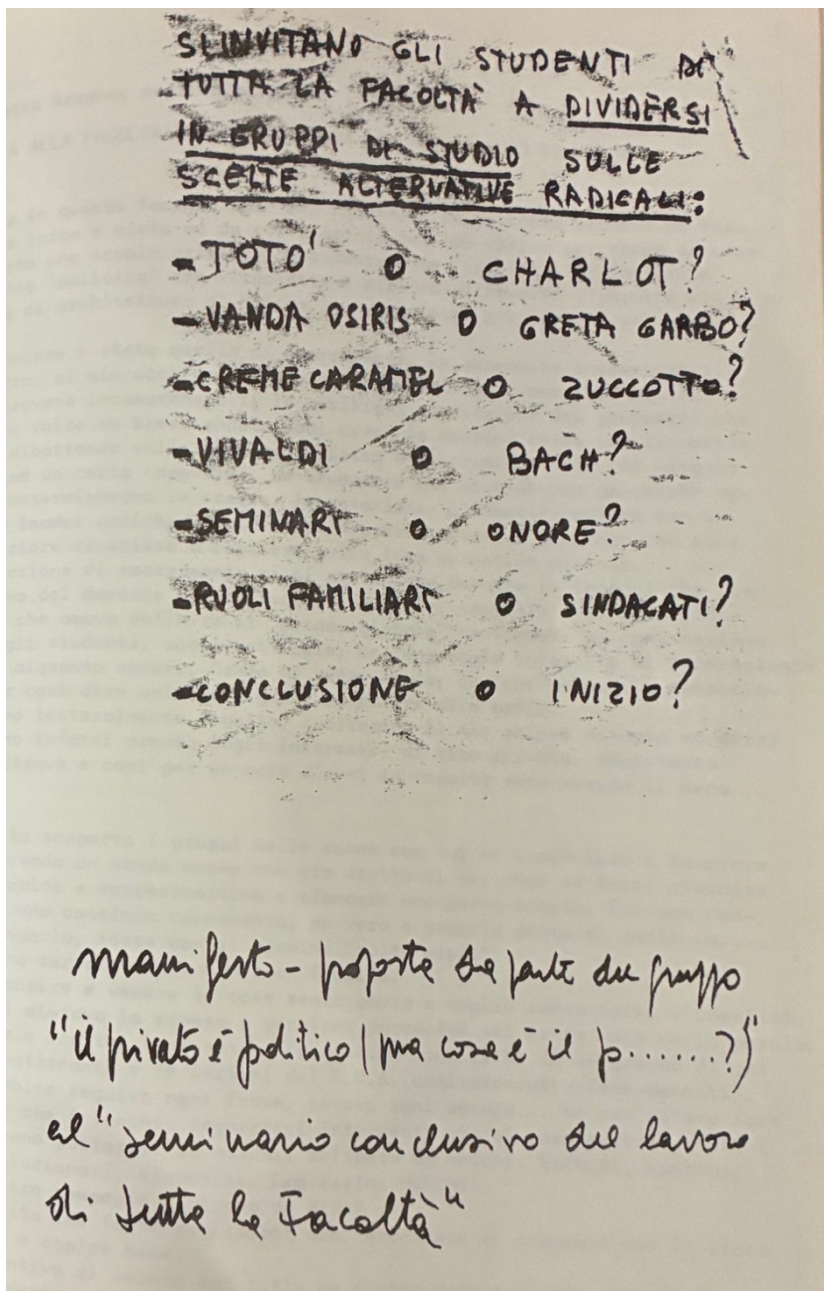 SI INVITANO GLI STUDENTI DI
TUTTA LA FACOLTÀ A DIVIDERSI
IN GRUPPI DI STUDIO SULLE
SCELTE ALTERNATIVE RADICALI:
- TOTO' O CHARLOT?
- VANDA OSIRIS O GRETA GARBO?
- CREME CARAMEL O ZUCCOTTO?
- VIVALDI O BACH?
- SEMINARI O ONORE?
- RUOLI FAMILIARI O SINDACATI?
- CONCLUSIONE O INIZIO?
manifesto - proposta da parte du gruppo
"il privato é politico (ma cosa é il p......?)"
al "seminario conclusivo del lavoro
di tutta la Facoltà"